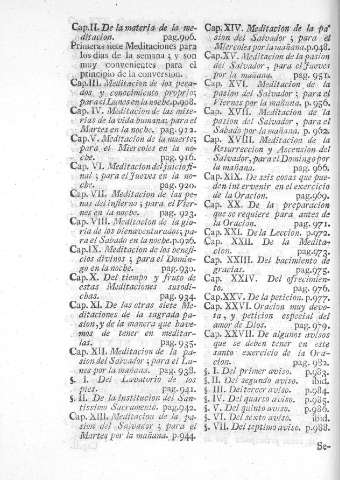 Cap.II. De la materia de la me-
ditacion. pag.906.
Primeras siete Meditaciones para
los dias de la semana ; y son
muy convenientes para el
principio de la conversion.
Cap.III. Meditacion de los peca-
dos y conocimiento proprio;
para el Lunes en la noche.p.908.
Cap. IV. Meditacion de las mise-
rias de la vida humana; para el
Martes en la noche. pag. 912.
Cap.V. Meditacion de la muerte;
para el Miercoles en la no-
che. pag. 916.
Cap.VI. Meditacion del juicio fi-
nal ; para el Jueves en la no-
che. pag. 920.
Cap.VII. Meditacion de las pe-
nas del infierno ; para el Vier-
nes en la noche. pag. 923.
Cap.VIII. Meditacion de la glo-
ria de los bienaventurados; pa-
ra el Sabado en la noche.p.926.
Cap.IX. Meditacion de los benefi-
cios divinos ; para el Domin-
go en la noche. pag.930.
Cap.X. Del tiempo y fruto de
estas Meditaciones susodi-
chas. pag. 934.
Cap. XI. De las otras siete Me-
ditaciones de la sagrada pa-
sion, y de la manera que have-
mos de tener en meditar-
las. pag. 935.
Cap. XII. Meditacion de la pa-
sion del Salvador ; para el Lu-
nes por la mañana. pag. 938.
§. I. Del Lavatorio de los
pies. pag.941.
§. II. De la Institucion del San-
tissimo Sacramento. pag.942.
Cap. XIII. Meditacion de la pa-
sion del Salvador ; para el
Martes por la mañana. p.944.
Cap. XIV. Meditacion de la pa-
sion del Salvador ; para el
Miercoles por la mañana.p.948.
Cap.XV. Meditacion de la pasion
del Salvador ; para el Jueves
por la mañana. pag. 951.
Cap. XVI. Meditacion de la
pasion del Salvador ; para el
Viernes por la mañana. p. 956.
Cap. XVII. Meditacion de la
pasion del Salvador , para el
Sabado por la mañana. p. 962.
Cap. XVIII. Meditacion de la
Resurreccion y Ascension del
Salvador; para el Domingo por
la mañana. pag. 966.
Cap. XIX. De seis cosas que pue-
den intervenir en el exercicio
de la Oracion. pag.969.
Cap. XX. De la preparacion
que se requiere para antes de
la Oracion. pag. 971.
Cap. XXI. De la Leccion. p.972.
Cap. XXII. De la Medita-
cion. pag.973.
Cap. XXIII. Del hacimiento de
gracias. pag.975.
Cap. XXIV. Del ofrecimien-
to. pag. 976.
Cap.XXV. De la peticion. p.977.
Cap.XXVI. Oracion muy devo-
ta , y peticion especial del
amor de Dios. pag. 979.
Cap.XXVII. De algunos avisos
que se deben tener en este
santo exercicio de la Ora-
cion. pag. 982.
§. I. Del primer aviso. p.983.
§. II. Del segundo aviso. ibid.
§. III. Del tercer aviso. p.984.
§. IV. Del quarto aviso. p.985.
§. V. Del quinto aviso. p.986.
§. VI. Del sexto aviso. ibid.
§. VII. Del septimo aviso. p.988.
Se-